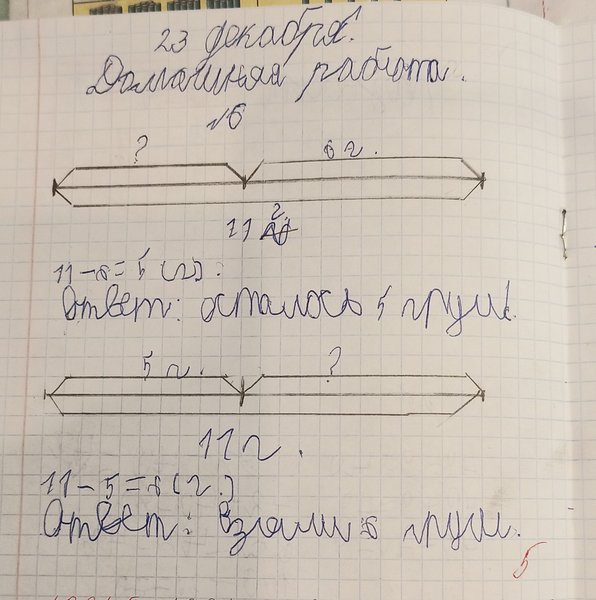 23 декабря.
Домашняя работа.
№6
? 6 г.
11 г.
11-6=5(г).
Ответ: осталось 5 груш.
5 г. ?
11 г.
11-5=6(г.)
Ответ: взяли 6 груш.
5